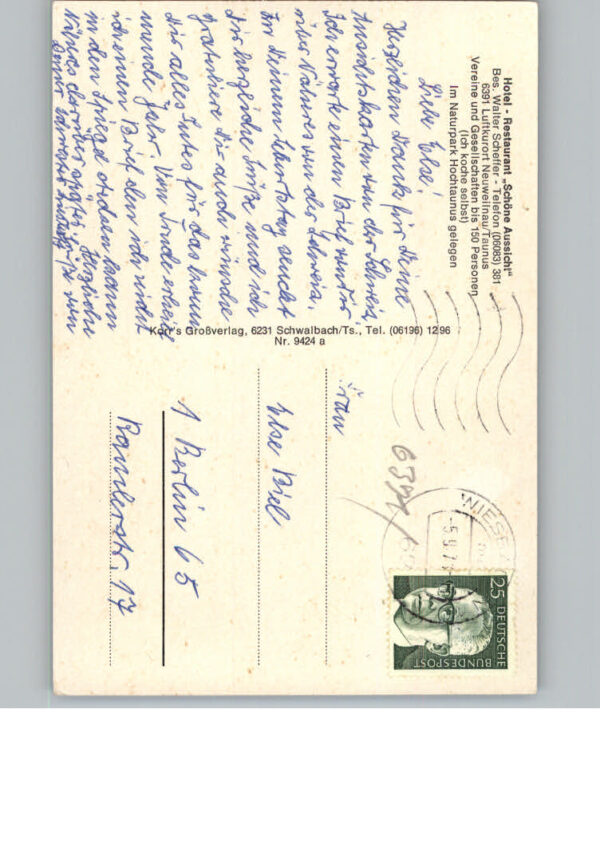 Hotel - Restaurant „Schöne Aussicht"
Bes. Walter Scheffer - Telefon (06083) 381
6391 Luftkurort Neuweilnau/Taunus
Vereine und Gesellschaften bis 150 Personen
(Ich koche selbst)
Im Naturpark Hochtaunus gelegen
Liebe Else!
Herzlichen Dank für Deine
Ansichtskarten von der Schweiz,
Ich erwarte einen Brief von Dir,
um Näheres von der Schweiz.
Zu Deinem Geburtstag sendet
Dir herzliche Grüße und ich
gratuliere Dir auch wünsche
Dir alles Gutes für das kommende
Jahr. Von
einen Brief den ich nicht
in den Spiegel stecken kann
Näheres darüber später. Herzliche
Korr's Großverlag, 6231 Schwalbach/Ts., Tel. (06196) 1296
Nr. 9424 a
Frau
Else Biel
1 Berlin 65
Ramlerstr. 17
639
WIESB
-5.9.7
25 DEUTSCHE
BUNDESPOST